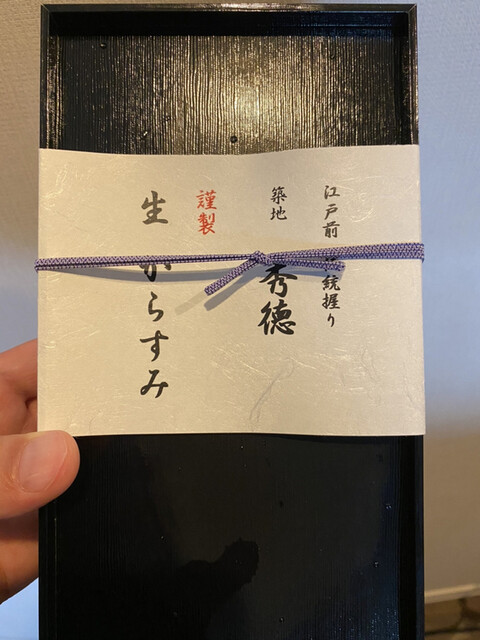 江戸前伝統握り
築地
秀徳
謹製
生からすみ